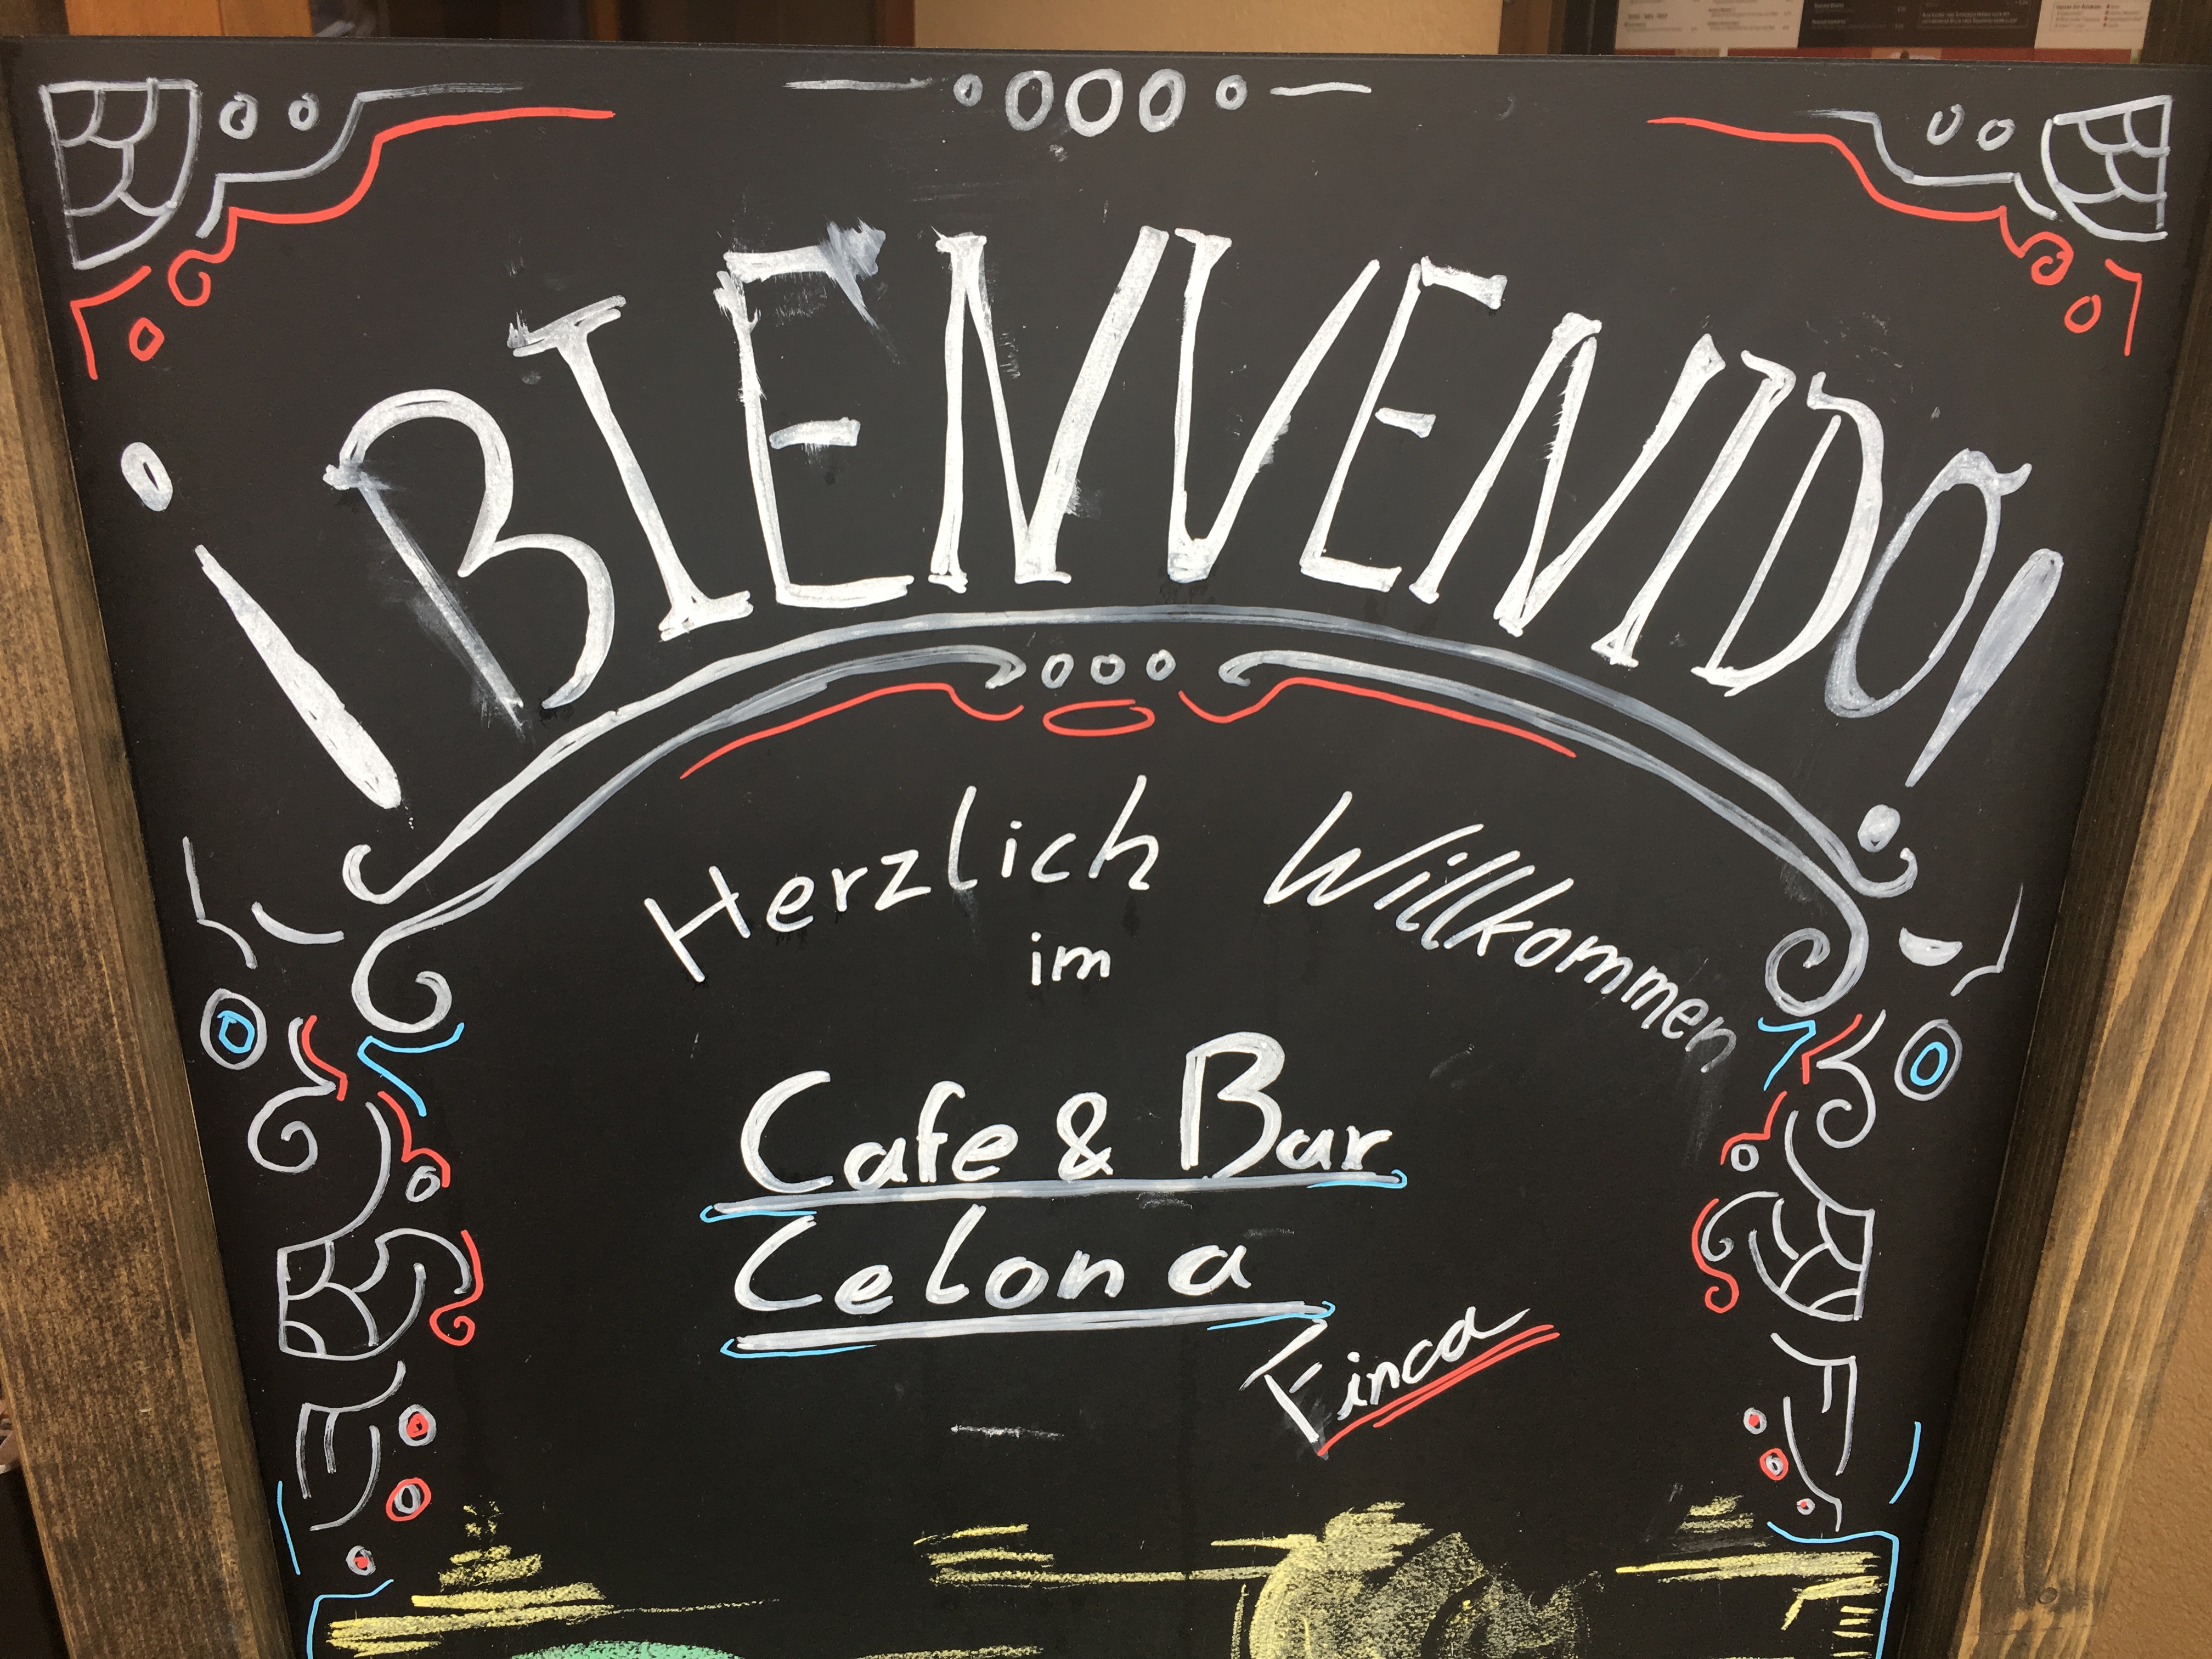 ¡BIENVENIDO!
Herzlich Willkommen
im
Cafe & Bar
Celona
Finca